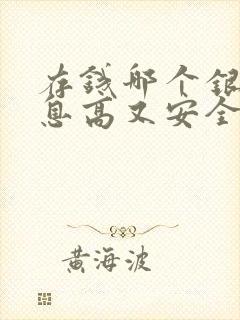 存钱哪个银
息高又安全
黄海波